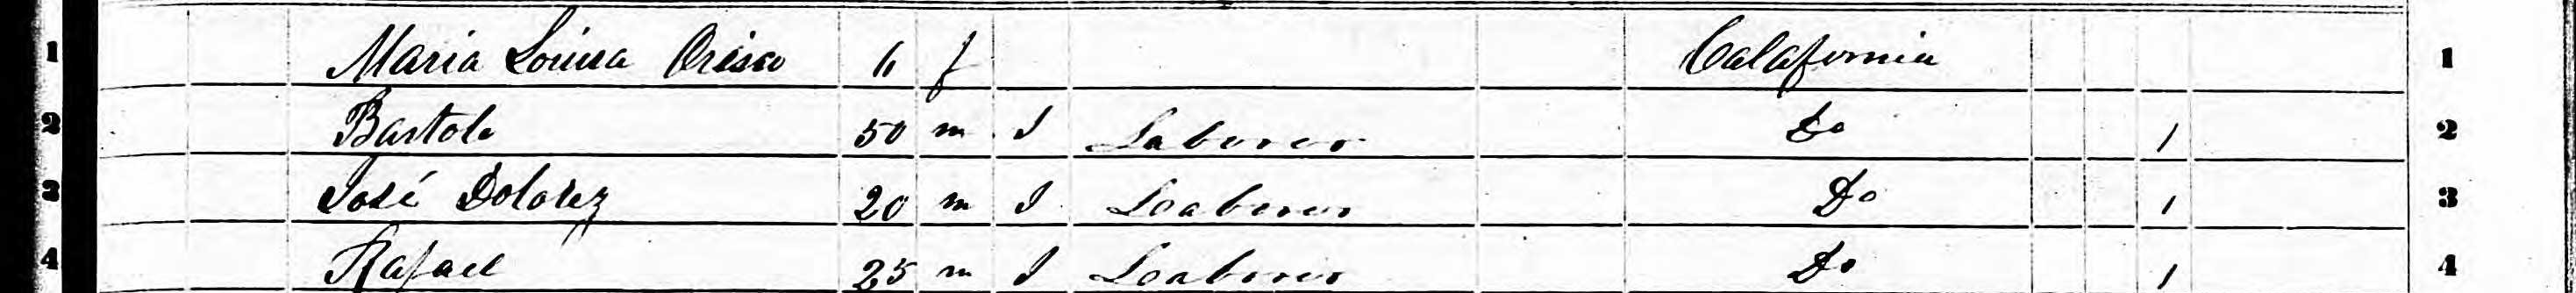 1 Maria Louisa 6 f Calafornia 1
2 Bartolo 50 m I Laborer Do 1 2
3 José Dolorez 20 m I Laborer Do 1 3
4 Rafael 25 m I Laborer Do 1 4